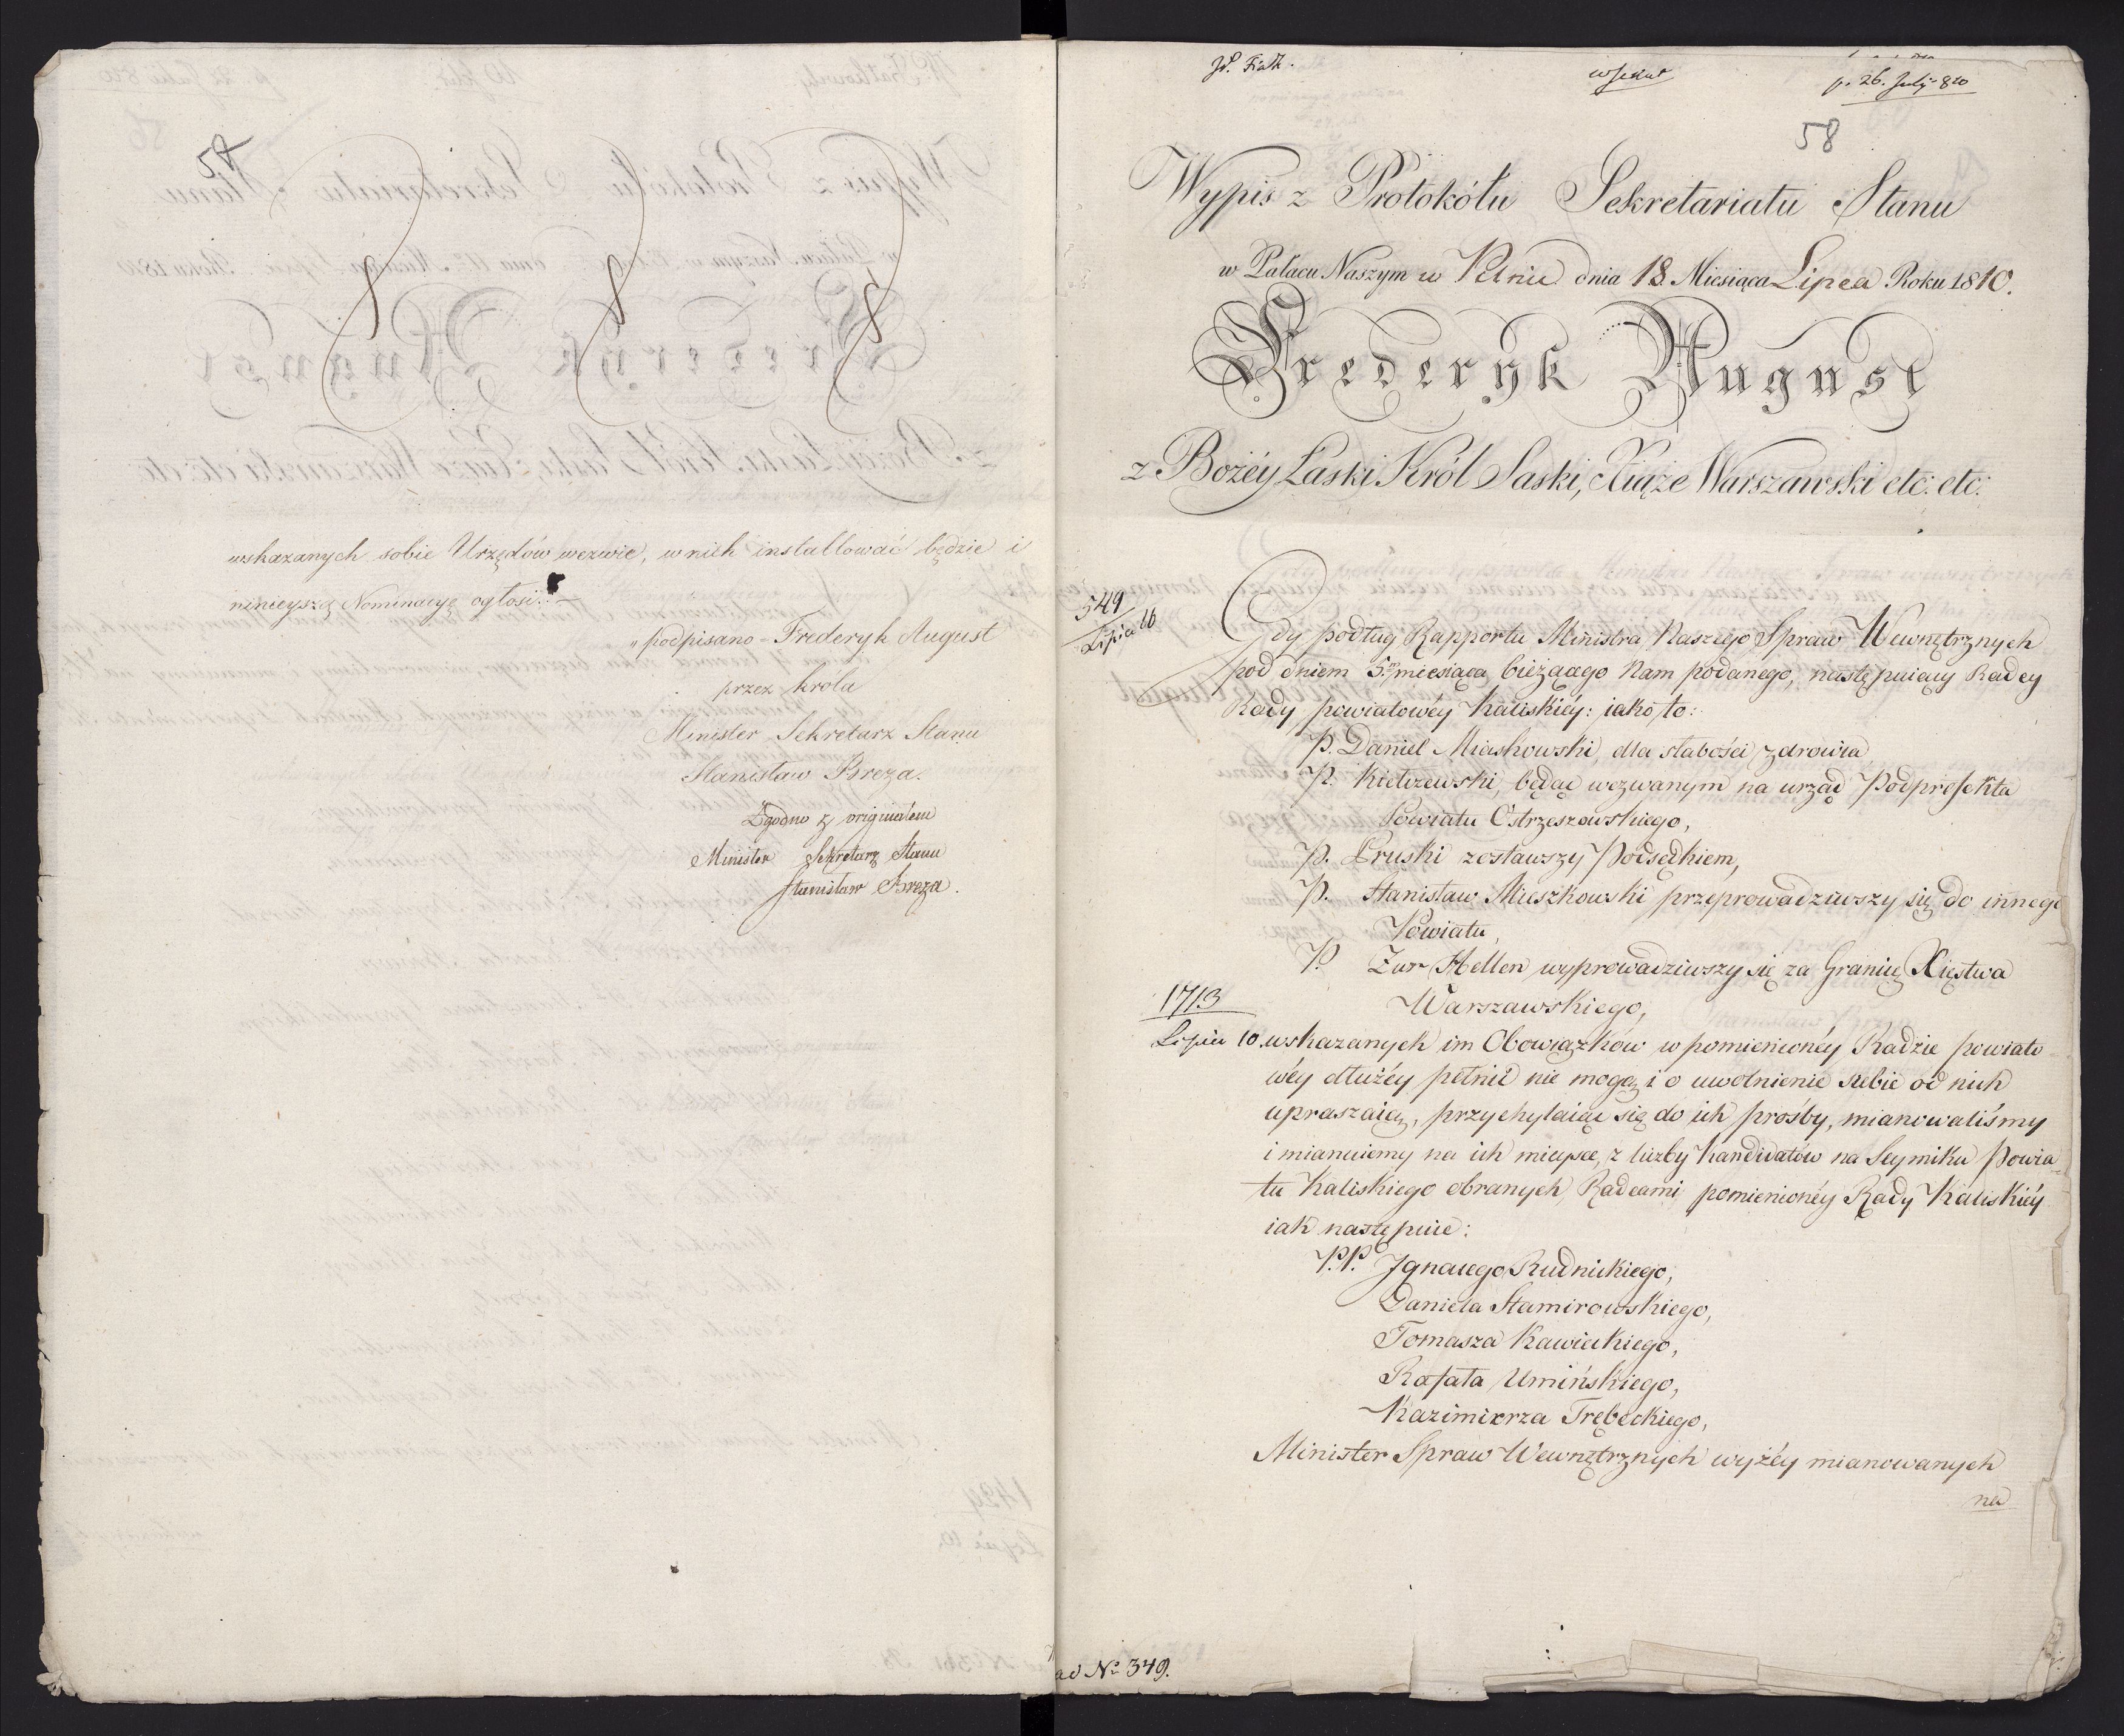 57
wskazanych sobie Urzędów wezwie, w nich installować będzie i
ninieyszą Nominacyę ogłosi.
"podpisano - Frederyk August
przez króla
Minister Sekretarz Stanu
Stanisław Breza.
Zgodno z originałem
Minister Sekretarz Stanu
Stanisław Breza.
p. 26. July 810
58
Wypis z Protokółu Sekretariatu Stanu
w Pałacu Naszym w Pilnic dnia 18. Miesiąca Lipca Roku 1810.
Frederyk August
z Bożéy Łaski Król Saski, Xiąże Warszawski etc. etc.
549
Lipca 10
Gdy podług Rapportu Ministra Naszego Spraw Wewnętrznych
pod dniem 5. miesiąca bieżącego Nam podanego, następuiący Radcy
Rady powiatowéy Kaliskiéy: iako to:
P. Daniel Miaskowski, dla słabości zdrowia
P. Kiełczewski, będąc wezwanym na urząd Podprefekta
Powiatu Ostrzeszowskiego,
P. Pruski zostawszy Podsędkiem,
P. Stanisław Mieszkowski przeprowadziwszy się do innego
Powiatu,
P. Zur Hellen wyprowadziwszy się za Granicę Xięstwa
Warszawskiego,
1713
Lipca 10.
wskazanych im Obowiązków w pomienionéy Radzie powiato
wéy dłużéy pełnić nie mogą i o uwolnienie siebie od nich
upraszaią, przychylaiąc się do ich prośby, mianowaliśmy
i mianuiemy na ich mieysce, z liczby Kandidatów na Seymiku Powia-
tu Kaliskiego obranych, Radcami pomienionéy Rady Kaliskiéy
iak następuie:
P.P. Ignacego Rudnickiego,
Daniela Stamirowskiego,
Tomasza Kawieckiego,
Rafała Umińskiego,
Kazimierza Trębeckiego,
Minister Spraw Wewnętrznych wyżéy mianowanych
na
ad No 349.